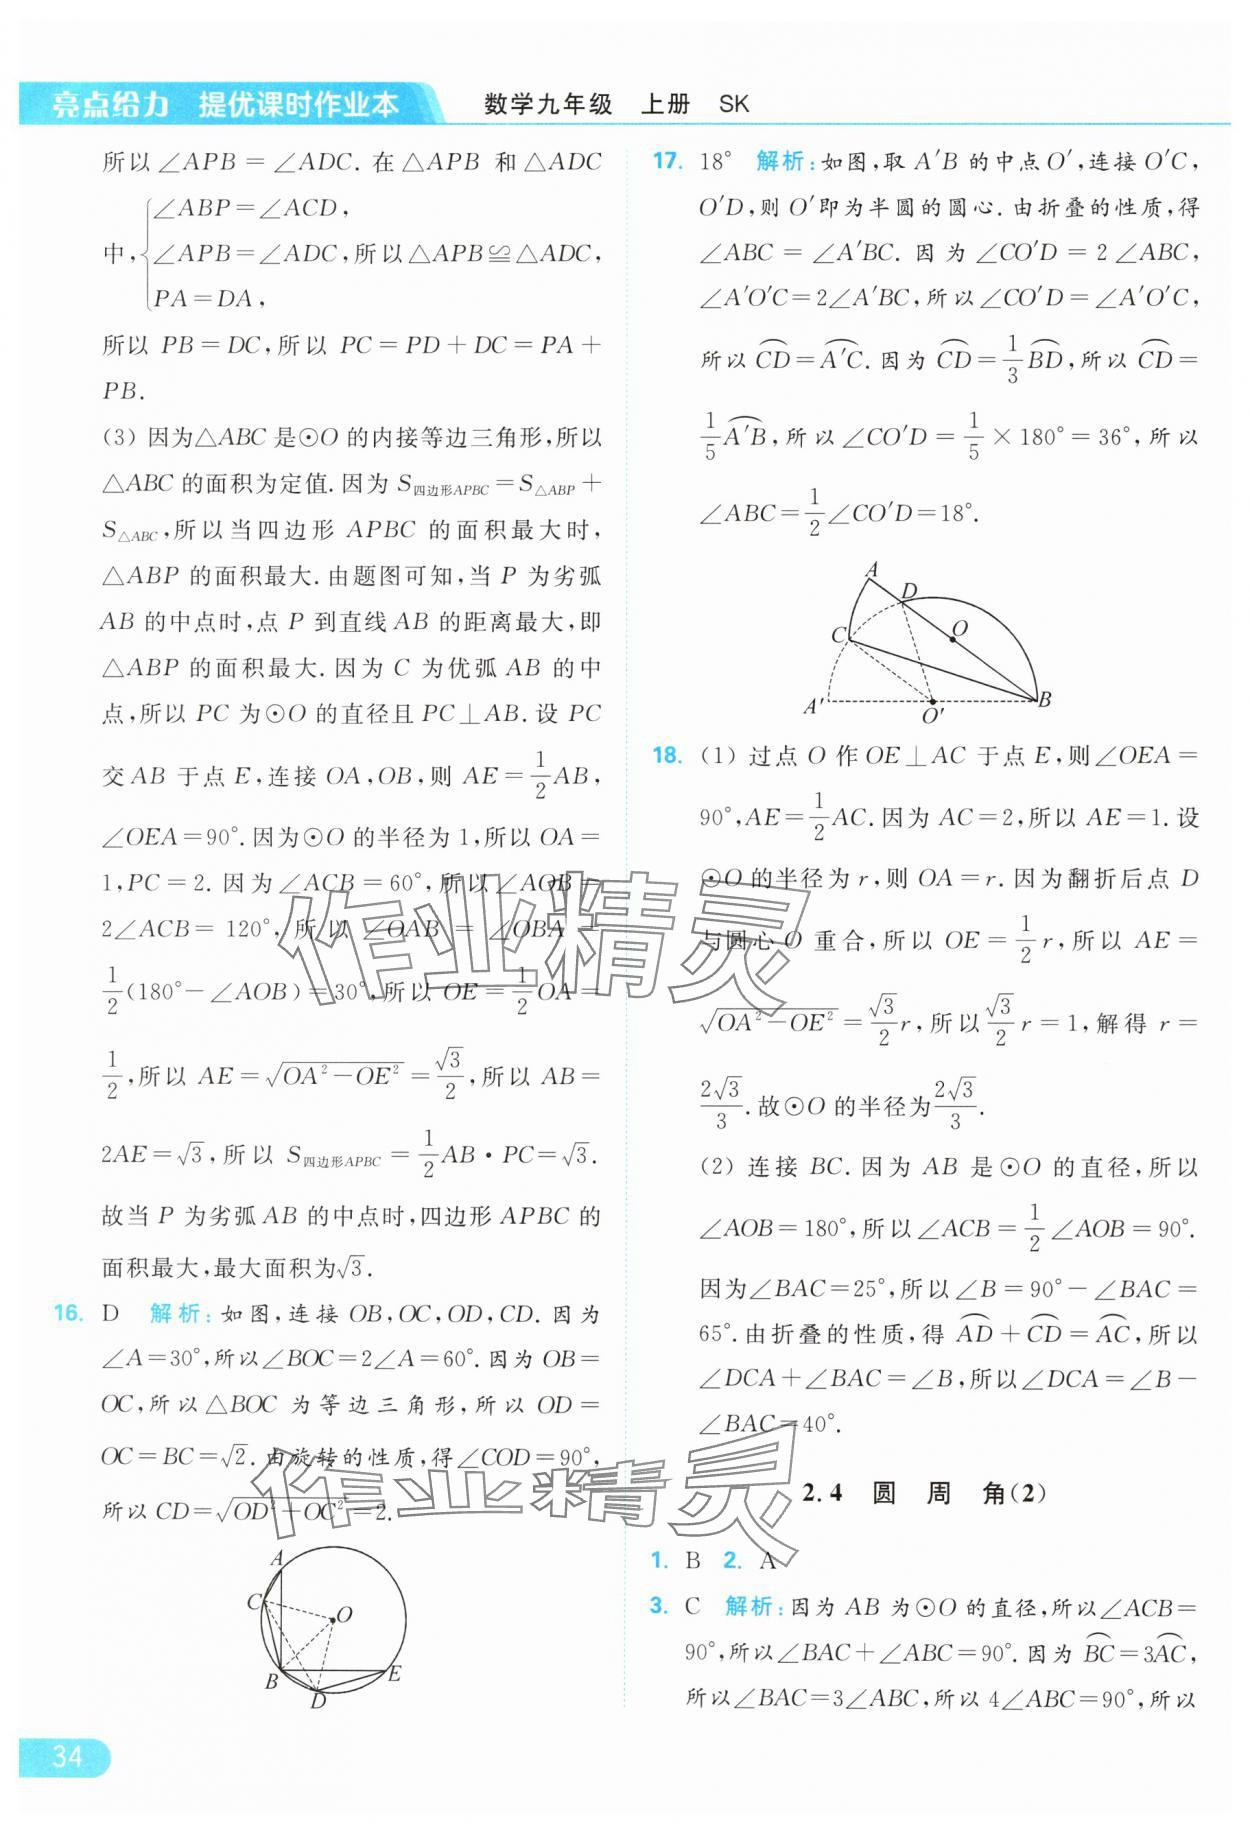 亮点给力 提优课时作业本 数学九年级 上册 SK
所以∠APB=∠ADC.在△APB和△ADC
∠ABP=∠ACD,
中,∠APB=∠ADC,所以△APB≌△ADC,
PA=DA,
所以PB=DC,所以PC=PD+DC=PA+
PB.
(3)因为△ABC是⊙O的内接等边三角形,所以
△ABC的面积为定值.因为S四边形APBC=S△ABP+
S△ABC,所以当四边形APBC的面积最大时,
△ABP的面积最大.由题图可知,当P为劣弧
AB的中点时,点P到直线AB的距离最大,即
△ABP的面积最大.因为C为优弧AB的中
点,所以PC为⊙O的直径且PC⊥AB.设PC
交AB于点E,连接OA,OB,则AE=1/2AB,
∠OEA=90°.因为⊙O的半径为1,所以OA=
1,PC=2.因为∠ACB=60°,所以∠AOB=
2∠ACB=120°,所以∠OAB=∠OBA=
1/2(180°-∠AOB)=30°,所以OE=1/2OA=
1/2,所以AE=√(OA²-OE²)=√3/2,所以AB=
2AE=√3,所以S四边形APBC=1/2AB·PC=√3.
故当P为劣弧AB的中点时,四边形APBC的
面积最大,最大面积为√3.
16. D 解析:如图,连接OB,OC,OD,CD.因为
∠A=30°,所以∠BOC=2∠A=60°.因为OB=
OC,所以△BOC为等边三角形,所以OD=
OC=BC=√2.由旋转的性质,得∠COD=90°,
所以CD=√(OD²+OC²)=2.
A
C
O
B
E
D
17. 18° 解析:如图,取A′B的中点O′,连接O′C,
O′D,则O′即为半圆的圆心.由折叠的性质,得
∠ABC=∠A′BC.因为∠CO′D=2∠ABC,
∠A′O′C=2∠A′BC,所以∠CO′D=∠A′O′C,
所以⌒CD=⌒A′C.因为⌒CD=1/3⌒BD,所以⌒CD=
1/5⌒A′B,所以∠CO′D=1/5×180°=36°,所以
∠ABC=1/2∠CO′D=18°.
A
D
C
O
A′
O′
B
18. (1)过点O作OE⊥AC于点E,则∠OEA=
90°,AE=1/2AC.因为AC=2,所以AE=1.设
⊙O的半径为r,则OA=r.因为翻折后点D
与圆心O重合,所以OE=1/2r,所以AE=
√(OA²-OE²)=√3/2r,所以√3/2r=1,解得r=
2√3/3.故⊙O的半径为2√3/3.
(2)连接BC.因为AB是⊙O的直径,所以
∠AOB=180°,所以∠ACB=1/2∠AOB=90°.
因为∠BAC=25°,所以∠B=90°-∠BAC=
65°.由折叠的性质,得⌒AD+⌒CD=⌒AC,所以
∠DCA+∠BAC=∠B,所以∠DCA=∠B-
∠BAC=40°.
2.4 圆周角(2)
1. B 2. A
3. C 解析:因为AB为⊙O的直径,所以∠ACB=
90°,所以∠BAC+∠ABC=90°.因为⌒BC=3⌒AC,
所以∠BAC=3∠ABC,所以4∠ABC=90°,所以
34
作业精灵
作业精灵